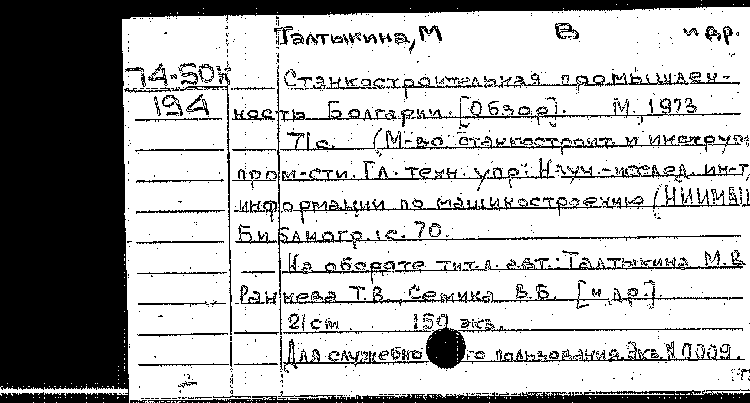 Талтыкина, М В и др.
74-50к
194
Станкостроительная промышлен-
ность Болгарии. [Обзор]. М., 1973
71с. (М-во станкостроит. и инструм.
пром-сти. Гл. техн. упр. Науч.-исслед. ин-т
информации по машиностроению (НИИМАШ
Библиогр. с. 70.
На обороте тит. л. авт.: Талтыкина М.В.
Ранкева Т.В., Семика В.Б. [и др.].
21cm 150 экз.
Для служебно го пользования. Экз. N